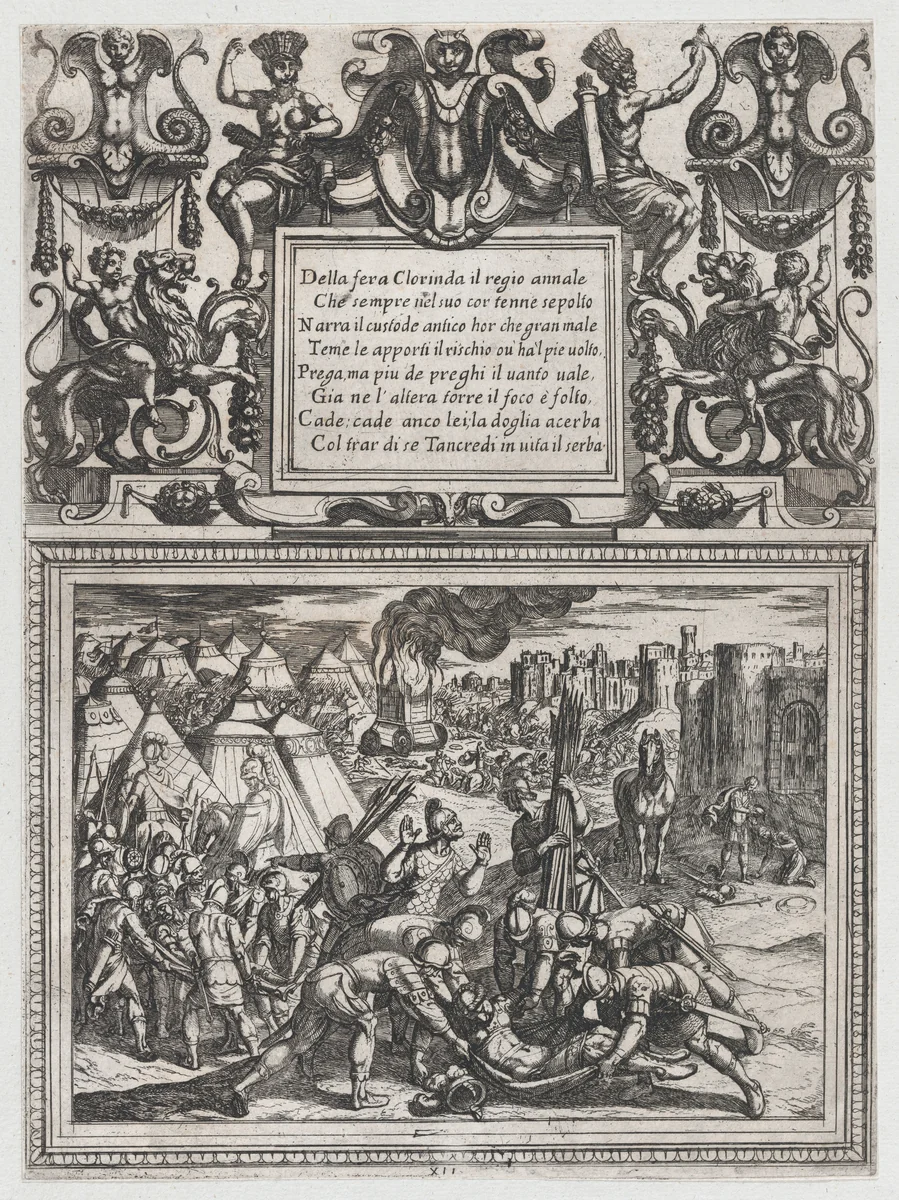 Della fera Clorinda il regio annale
Che sempre nel suo cor tenne sepolto
Narra il custode antico hor che gran male
Teme le apporti il rischio ou' ha'l pie uolto,
Prega, ma piu de preghi il uanto uale,
Gia ne l' altera torre il foco è folto,
Cade; cade anco lei; la doglia acerba
Col trar di se Tancredi in uita il serba.
XII